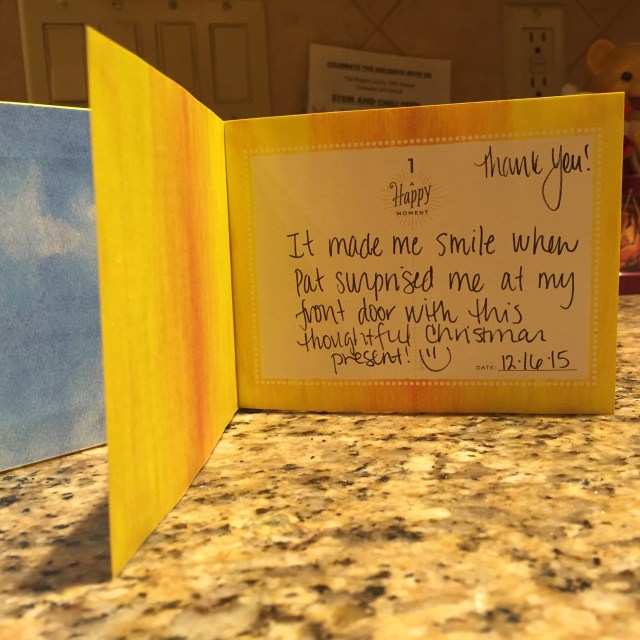 CELEBRATE THE HOLIDAYS WITH US
STEW AND CHILI
1
a
Happy
MOMENT
Thank You!
It made me smile when
Pat surprised me at my
front door with this
thoughtful Christmas
present! :)
DATE: 12·16·15